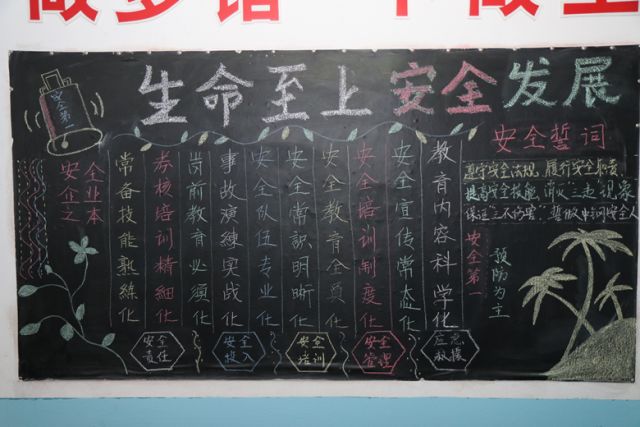 做多错 不做全
生命至上安全发展
安全第一
安全誓词
遵守安全法规，履行安全职责，
提高安全技能，消灭三违现象
保证"三不伤害"，誓做本询安全人
教育内容科学化
安全宣传常态化
安全培训制度化
安全教育全员化
安全常识明晰化
安全队伍专业化
事故演练实战化
岗前教育必须化
考核培训精细化
常备技能熟练化
安全企业之本
安全第一
预防为主
安全责任
安全投入
安全培训
安全管理
应急救援